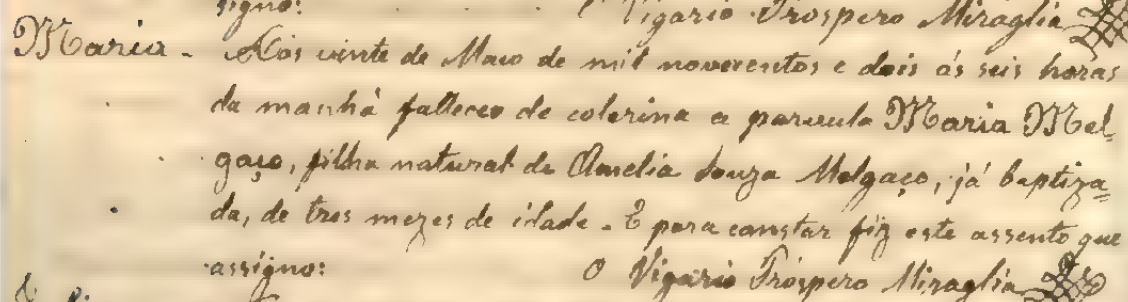 signo: O Vigario Prospero Miraglia
Maria - Aos vinte de Maio de mil novecentos e dois ás seis horas
da manhã falleceo de colerina a parvula Maria Mel-
gaço, filha natural de Amelia Souza Melgaço, já baptiza-
da, de tres mezes de idade. E para constar fiz este assento que
assigno: O Vigario Próspero Miraglia